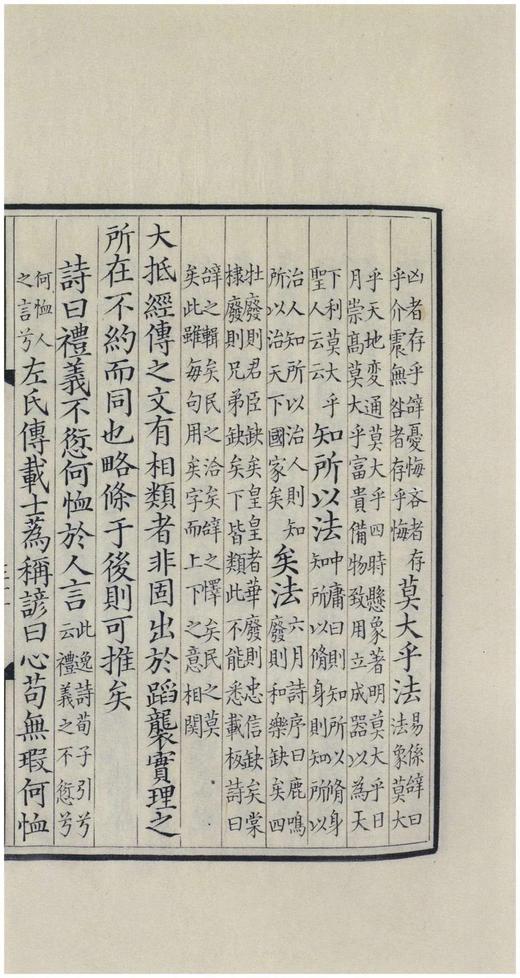 凶者存乎辭憂悔吝者存
乎介震無咎者存乎悔
莫大乎法
易係辭曰
法象莫大
乎天地変通莫大乎四時懸象著明莫大乎日
月崇高莫大乎富貴備物致用立成器以為天
下利莫大乎
聖人云云
知所以法
中庸曰則知所以脩身
知所以脩身則知所以
治人知所以治人則知
所以治天下國家矣
矣法
六月詩序曰鹿鳴
廢則和樂缺矣四
牡廢則君臣缺矣皇皇者華廢則忠信缺矣棠
棣廢則兄弟缺矣下皆類此不能悉載板詩曰
辭之輯矣民之洽矣辭之懌矣民之莫
矣此雖每句用矣字而上下之意相関
大抵經傳之文有相類者非固出於蹈襲實理之
所在不約而同也略條于後則可推矣
詩曰禮義不愆何恤於人言
此逸詩荀子引兮
云禮義之不愆兮
何恤人
之言兮
左氏傳載士蒍稱諺曰心苟無瑕何恤